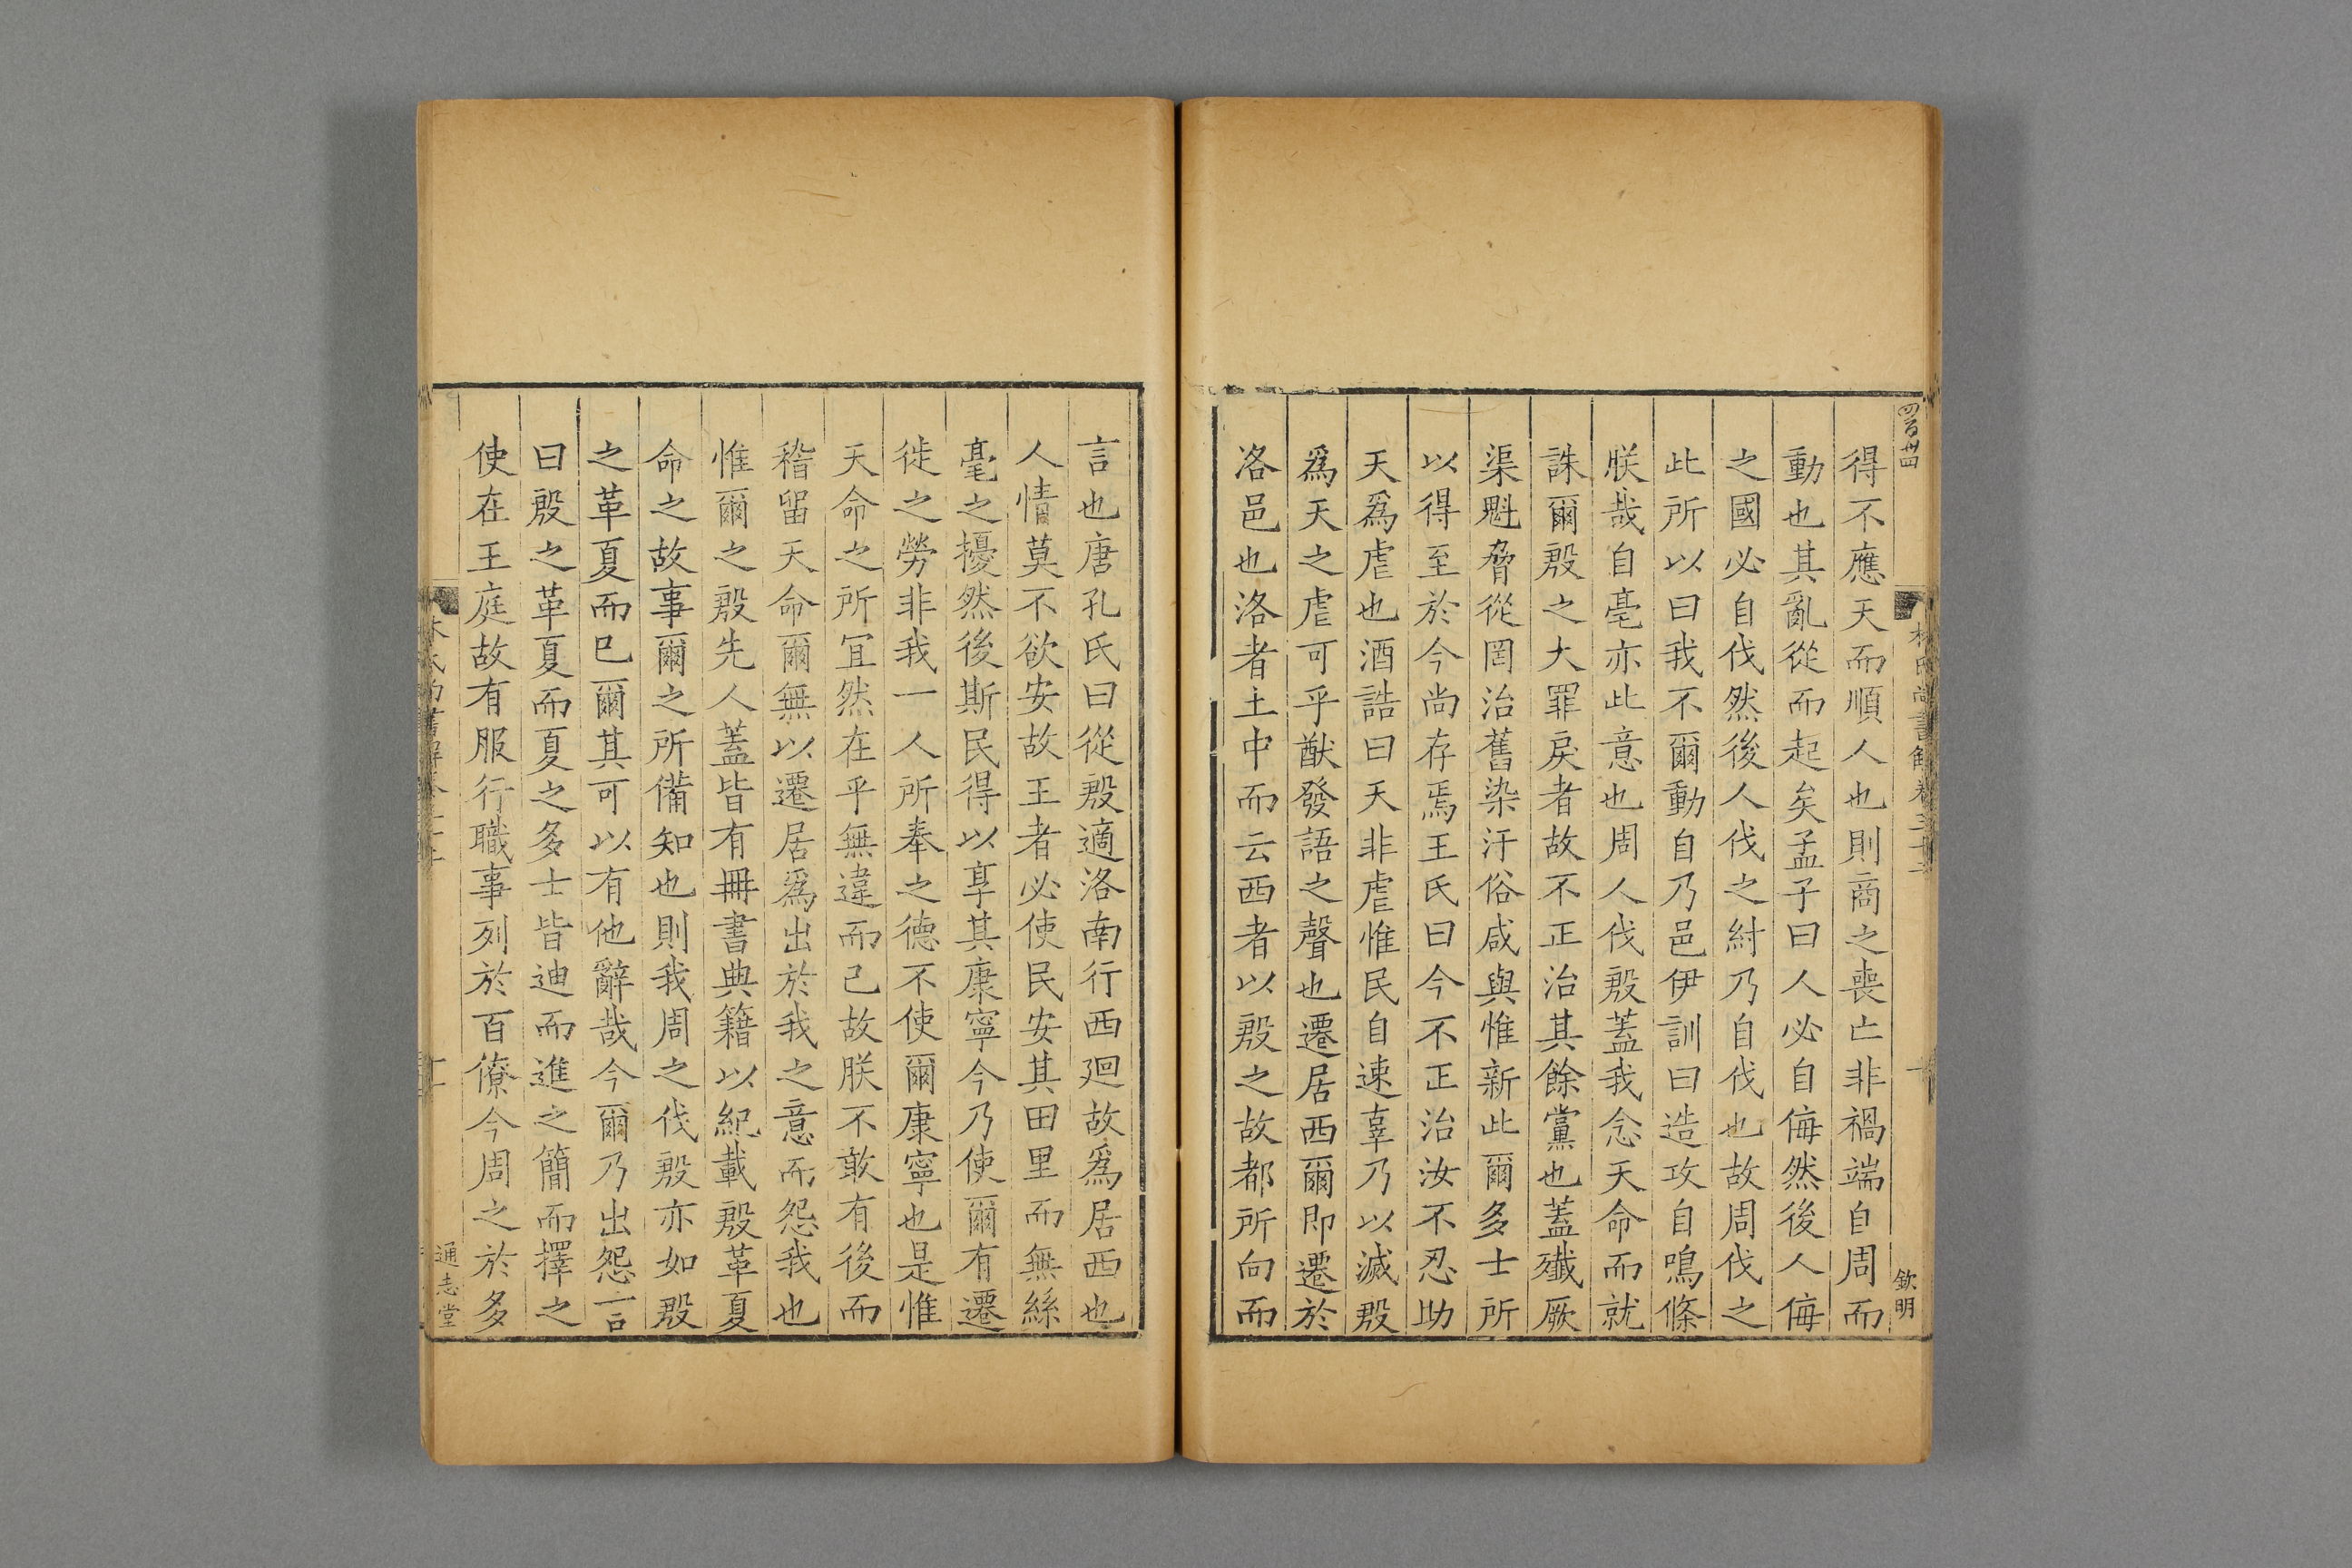 四百卅四
欽明
得不應天而順人也則商之喪亡非禍端自周而
動也其亂從而起矣孟子曰人必自侮然後人侮
之國必自伐然後人伐之紂乃自伐也故周伐之
此所以曰我不爾動自乃邑伊訓曰造攻自鳴條
朕哉自亳亦此意也周人伐殷蓋我念天命而就
誅爾殷之大罪戾者故不正治其餘黨也蓋殲厥
渠魁脅從罔治舊染汙俗咸與惟新此爾多士所
以得至於今尚存焉王氏曰今不正治汝不忍助
天爲虐也酒誥曰天非虐惟民自速辜乃以滅殷
爲天之虐可乎猷發語之聲也遷居西爾即遷於
洛邑也洛者土中而云西者以殷之故都所向而
言也唐孔氏曰從殷適洛南行西廻故爲居西也
人情莫不欲安故王者必使民安其田里而無絲
毫之擾然後斯民得以享其康寧今乃使爾有遷
徙之勞非我一人所奉之德不使爾康寧也是惟
天命之所宜然在乎無違而已故朕不敢有後而
稽留天命爾無以遷居爲出於我之意而怨我也
惟爾之殷先人蓋皆有冊書典籍以紀載殷革夏
命之故事爾之所備知也則我周之伐殷亦如殷
之革夏而巳爾其可以有他辭哉今爾乃出怨言
曰殷之革夏而夏之多士皆迪而進之簡而擇之
使在王庭故有服行職事列於百僚今周之於多
通志堂